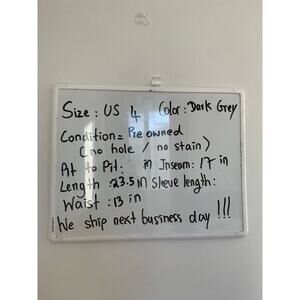 Size : US 4 Color : Dark Grey
Condition = Pre owned
(no hole / no stain)
At to Pit : in Inseam : 17 in
Length : 23.5 in Sleeve length :
Waist : 13 in
We ship next business day !!!